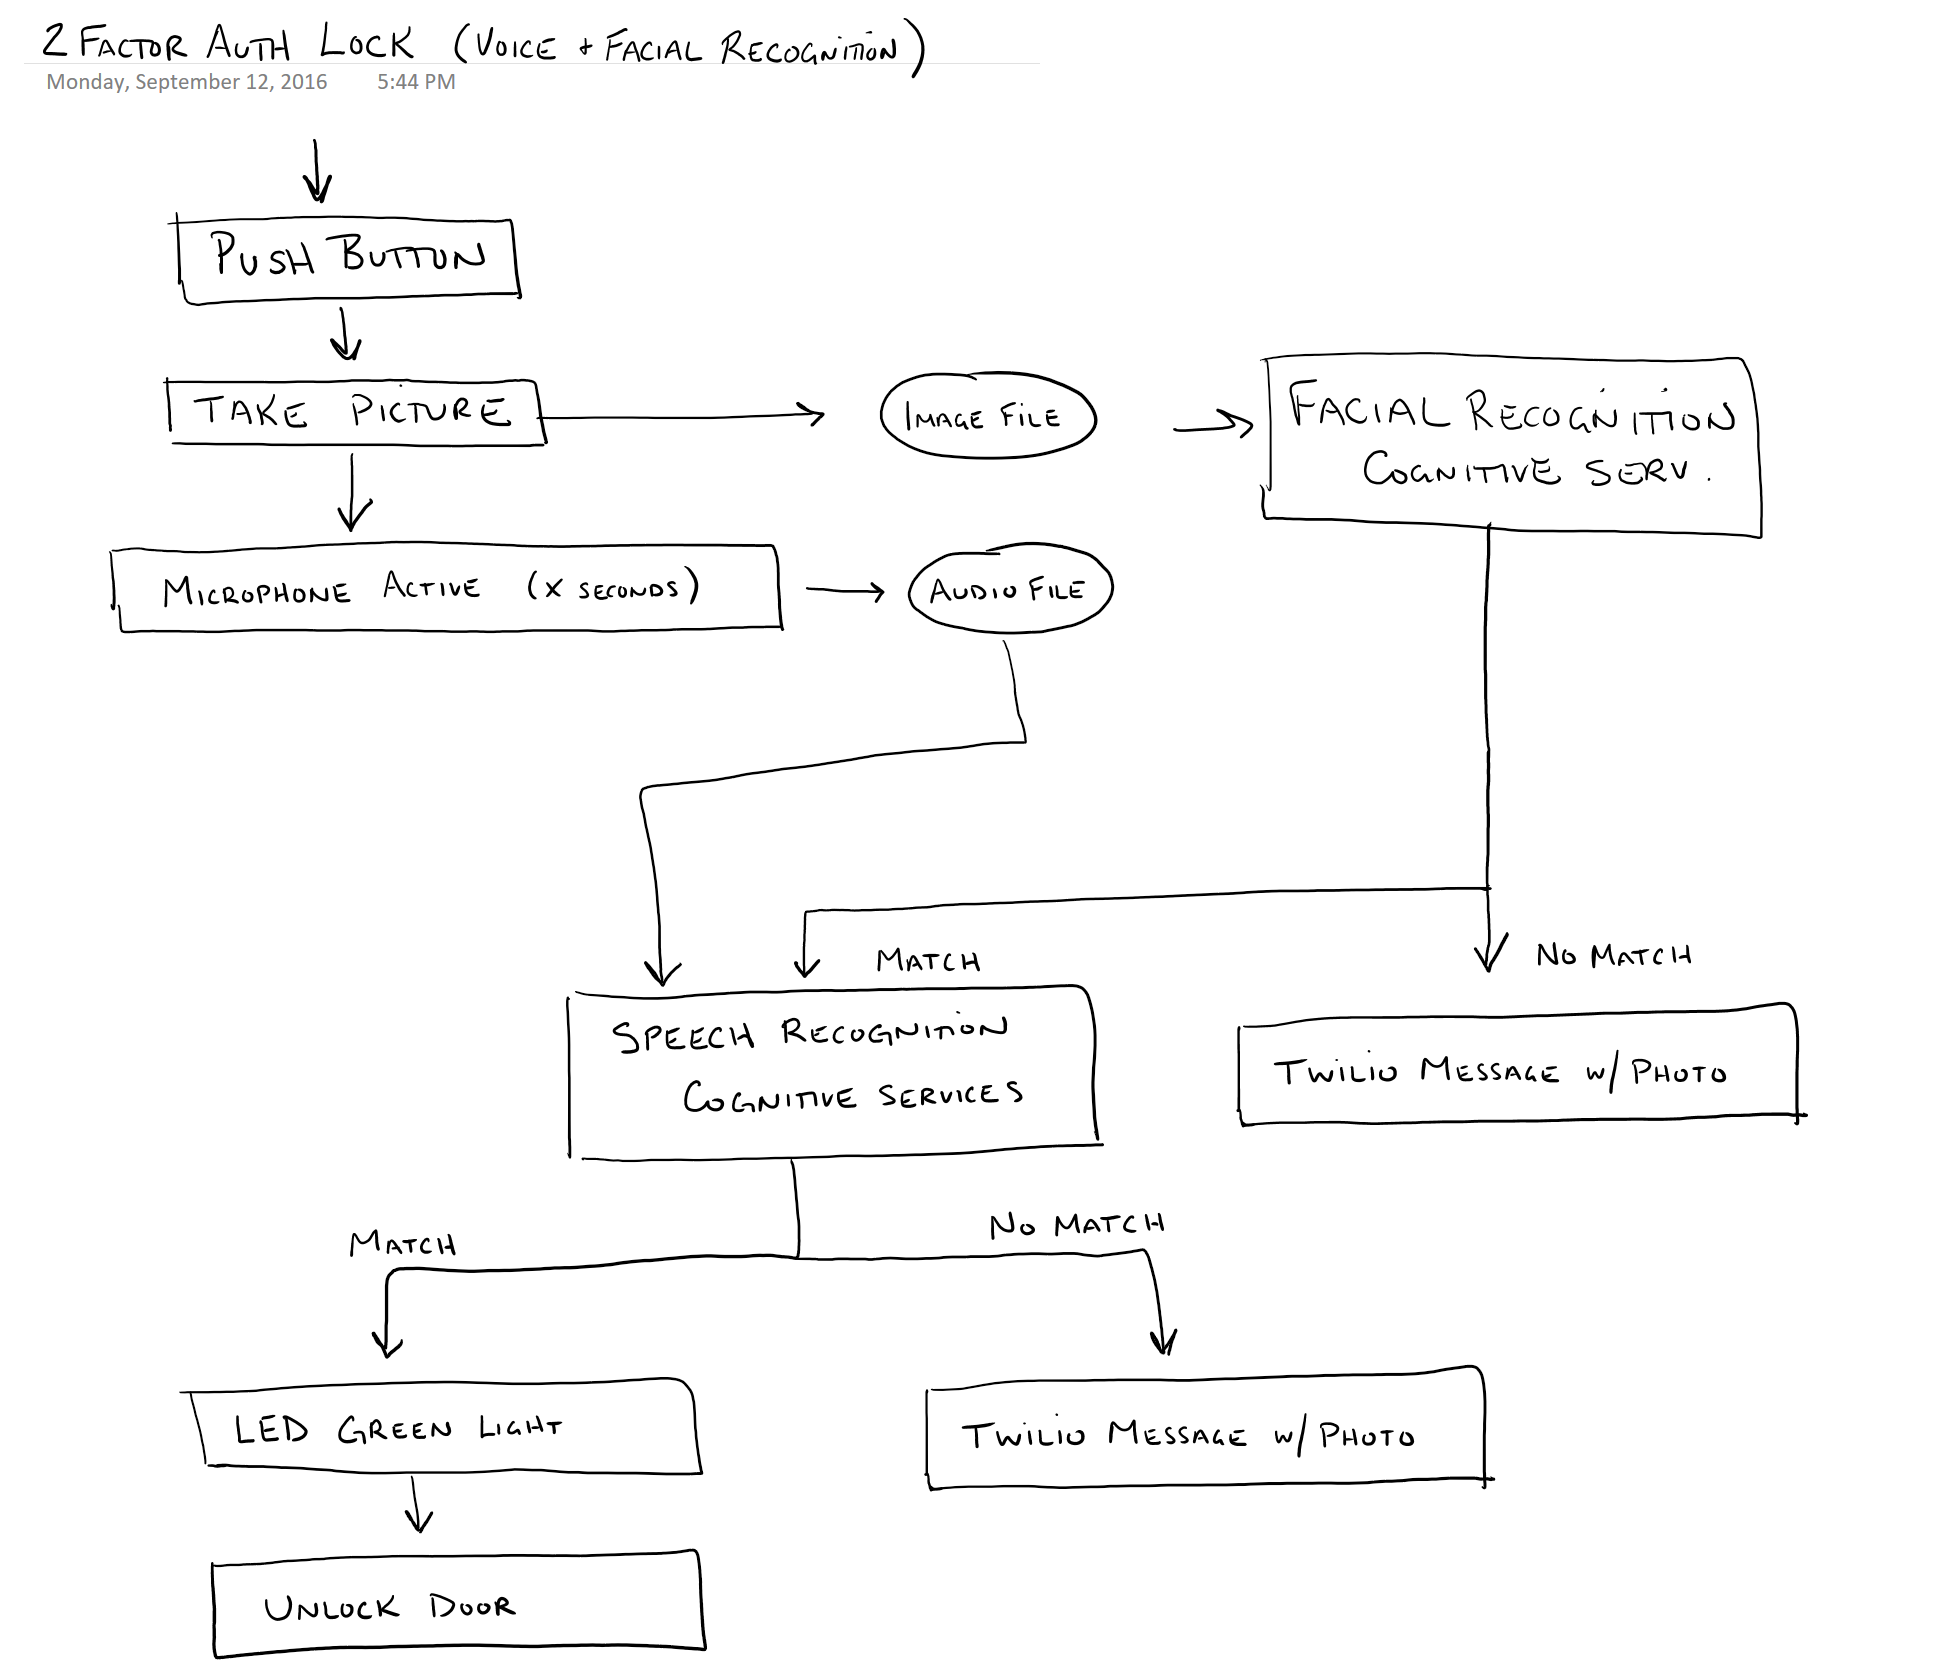 2 FACTOR AUTH LOCK (VOICE + FACIAL RECOGNITION)
Monday, September 12, 2016 5:44 PM
PUSH BUTTON
TAKE PICTURE
IMAGE FILE
FACIAL RECOGNITION
COGNITIVE SERV.
MICROPHONE ACTIVE (X SECONDS)
AUDIO FILE
MATCH
NO MATCH
SPEECH RECOGNITION
COGNITIVE SERVICES
TWILIO MESSAGE W/ PHOTO
MATCH
NO MATCH
LED GREEN LIGHT
TWILIO MESSAGE W/ PHOTO
UNLOCK DOOR